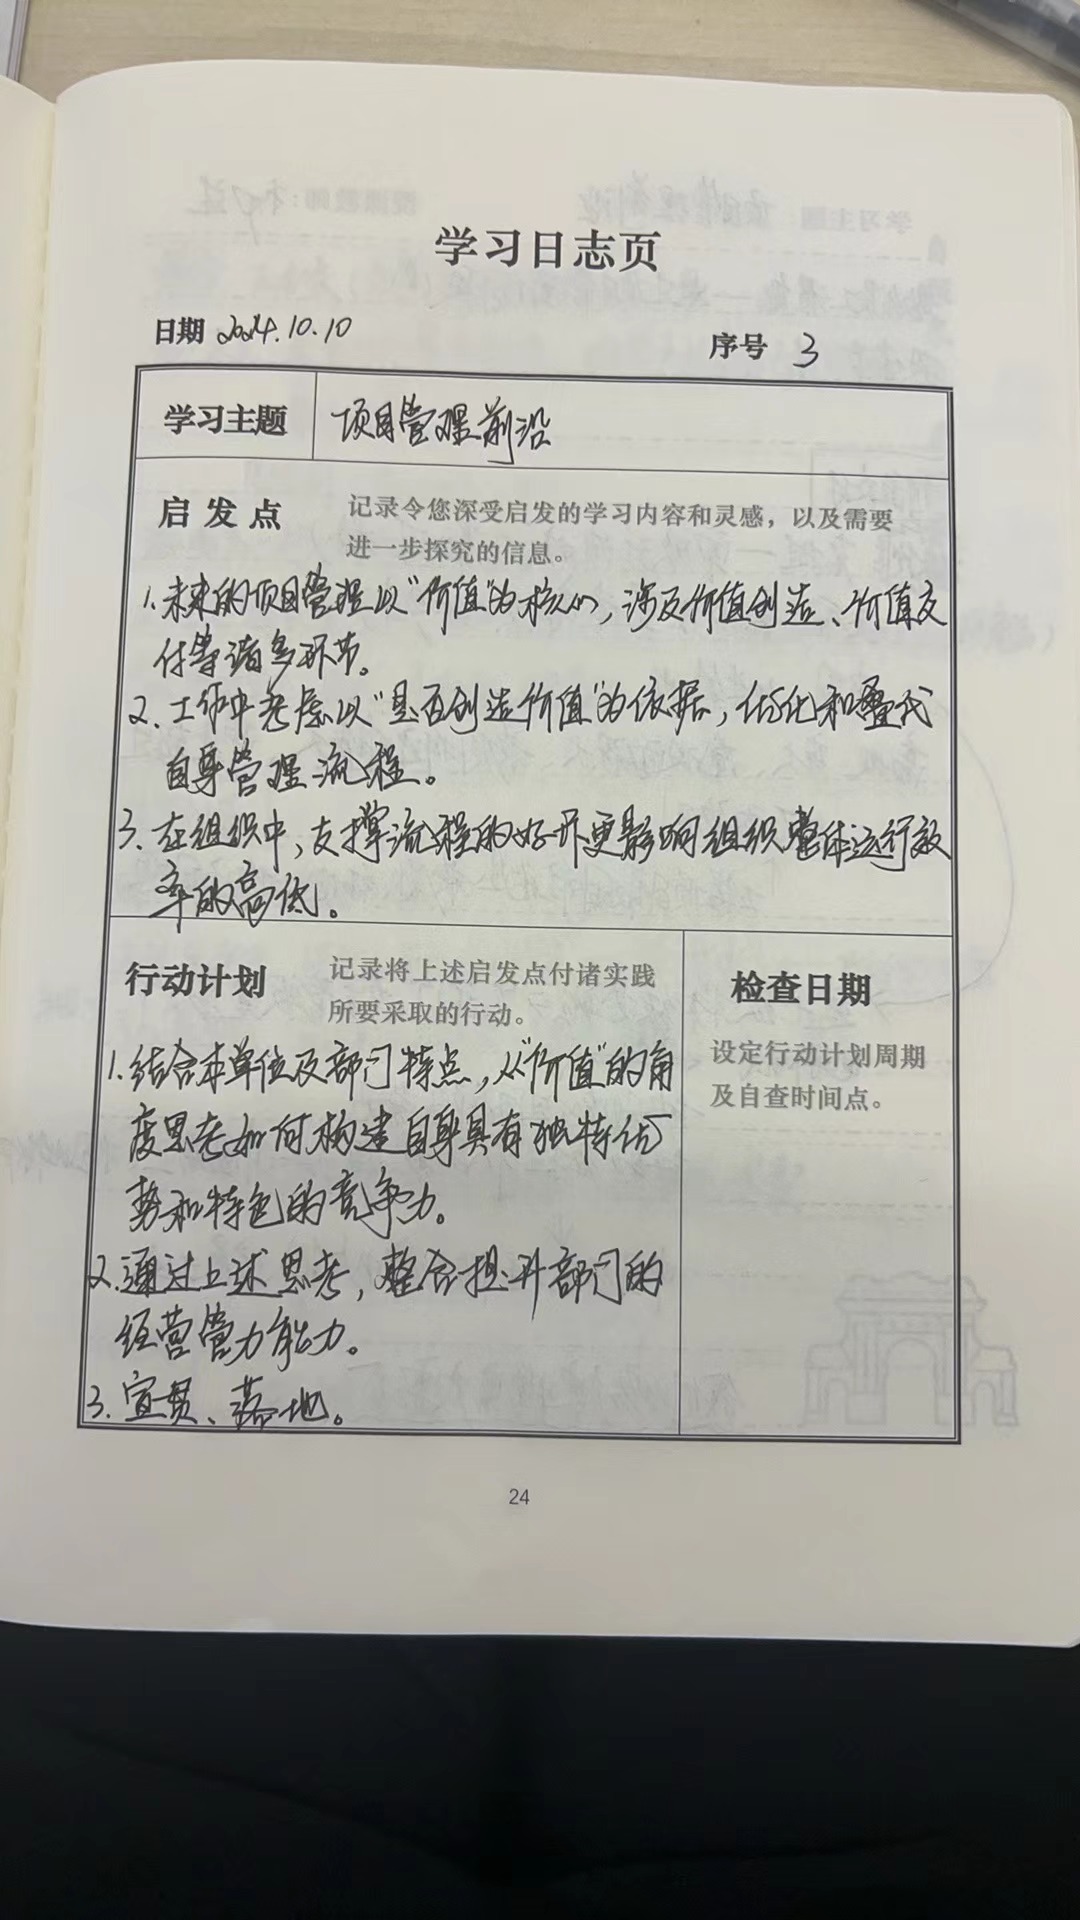 学习日志页
日期 2024.10.10
序号 3
学习主题 项目管理前沿
启发点 记录令您深受启发的学习内容和灵感，以及需要
进一步探究的信息。
1.未来的项目管理以“价值”为核心，涉及价值创造、价值交
付等诸多环节。
2.工作中考虑以“是否创造价值”为依据，优化和叠代
自身管理流程。
3.在组织中，支撑流程的好坏更影响组织整体运行效
率的高低。
行动计划 记录将上述启发点付诸实践
所要采取的行动。
1.结合本单位及部门特点，从“价值”的角
度思考如何构建自身具有独特优
势和特色的竞争力。
2.通过上述思考，整合提升部门的
经营管力能力。
3.宣贯、落地。
检查日期
设定行动计划周期
及自查时间点。
24